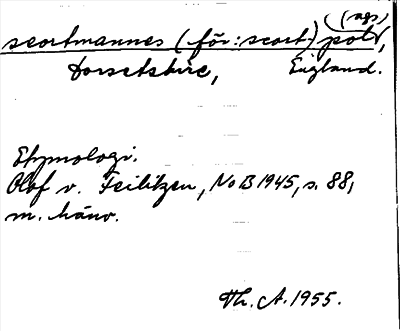 (ags)
scortmannes (för: scort) pott,
Dorsetshire, England.
Etymologi.
Olof v. Feilitzen, NoB 1945, s. 88,
m. hänv.
Th. A. 1955.